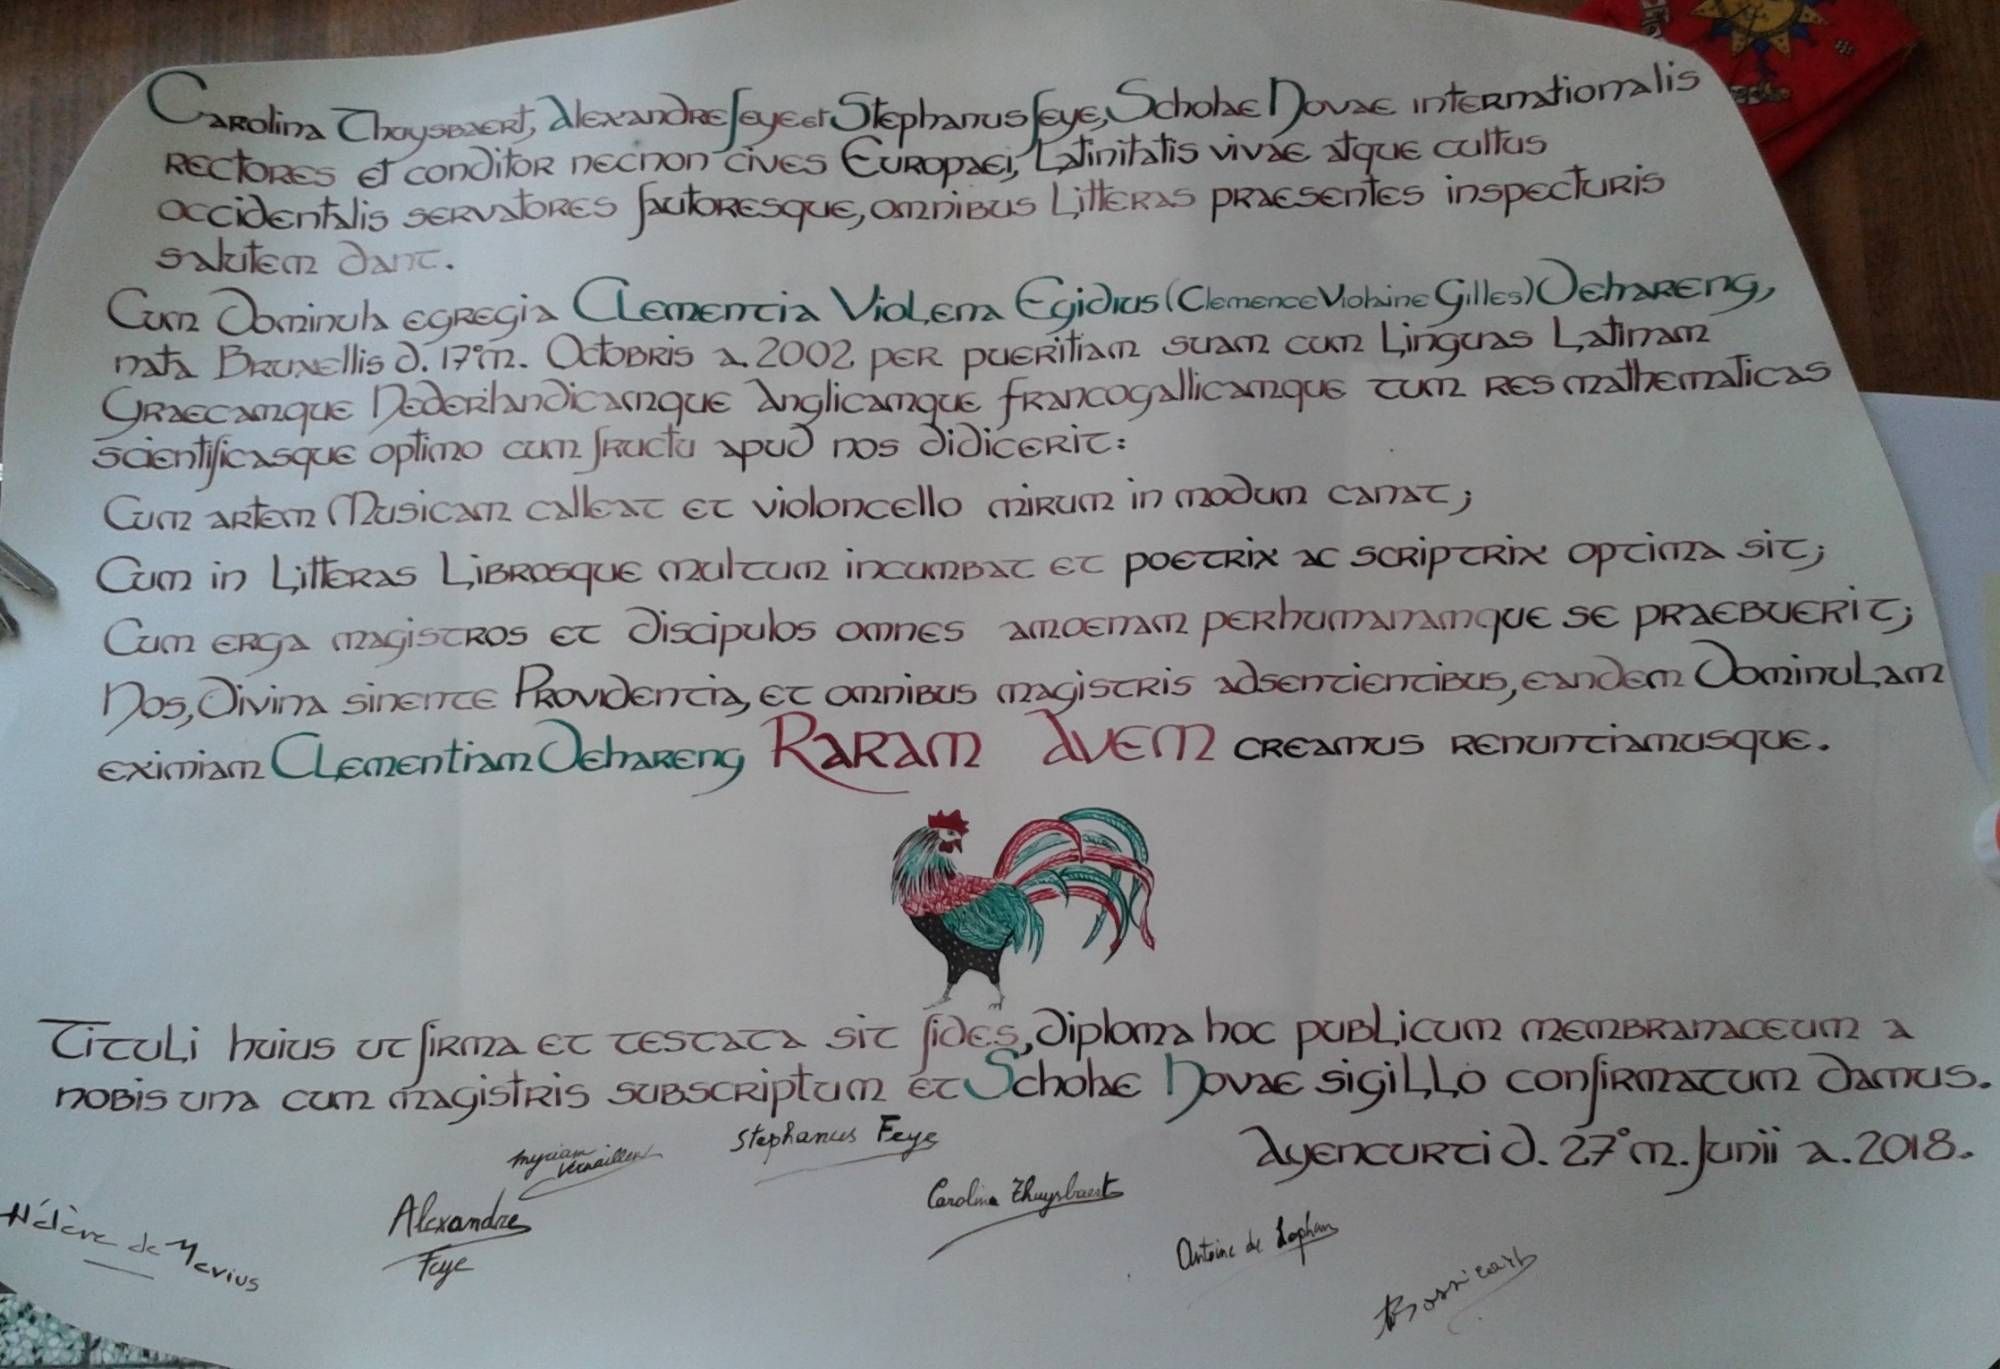 Carolina Thuysbaert, Alexandre Feye et Stephanus Feye, Scholae Novae internationalis
rectores et conditor necnon cives Europaei, Latinitatis vivae atque cultus
occidentalis servatores fautoresque, omnibus Litteras praesentes inspecturis
salutem dant.
Cum Dominula egregia Clementia Violena Egidius (Clemence Violaine Gilles) Dehareng,
nata Bruxellis d. 17° m. Octobris a. 2002 per pueritiam suam cum Linguas Latinam
Graecamque Nederlandicamque Anglicamque francogallicamque tum res mathematicas
scientificasque optimo cum fructu apud nos didicerit:
Cum artem Musicam calleat et violoncello mirum in modum canat;
Cum in Litteras Librosque multum incumbat et poetrix ac scriptrix optima sit;
Cum erga magistros et discipulos omnes amoenam perhumanamque se praebuerit;
Nos, Divina sinente Providentia, et omnibus magistris adsentientibus, eandem Dominulam
eximiam Clementiam Dehareng Raram Avem creamus renuntiamusque.
Tituli huius ut firma et testata sit fides, diploma hoc publicum membranaceum a
nobis una cum magistris subscriptum et Scholae Novae sigillo confirmatum damus.
Ayencurti d. 27° m. Junii a. 2018.
Myriam
Stephanus Feye
Hélène de Mevius
Alexandre
Feye
Carolina Thuysbaert
Antoine de